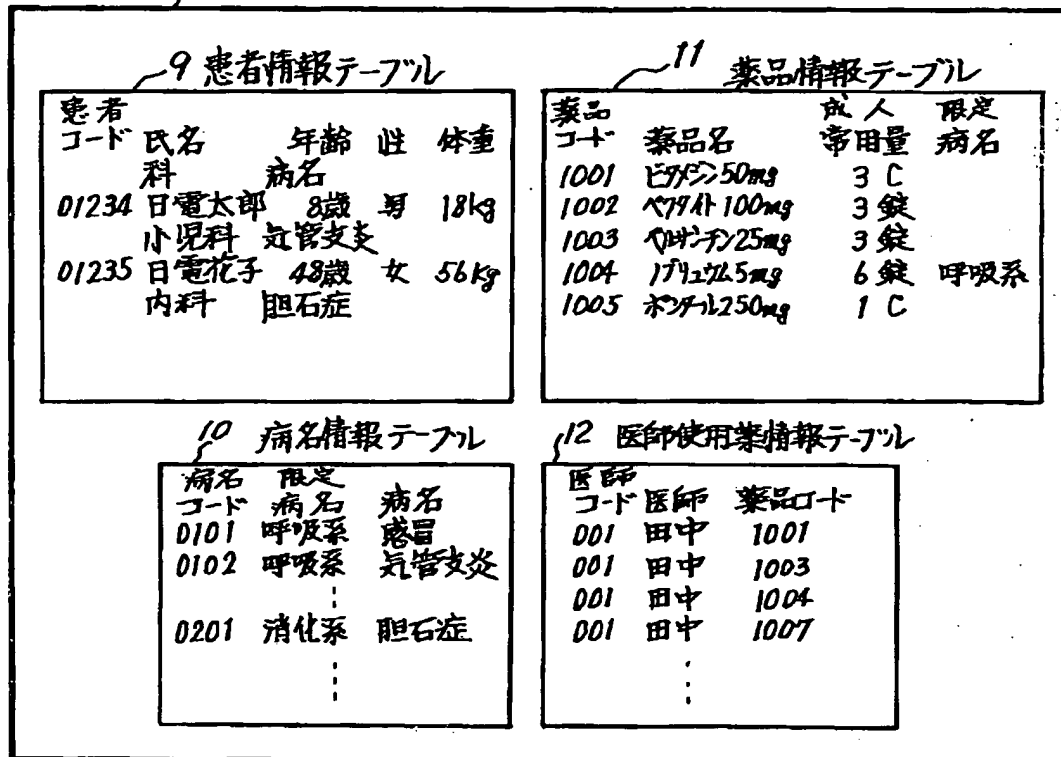 9 患者情報テーブル
患者
コード 氏名 年齢 性 体重
科 病名
01234 日電太郎 8歳 男 18kg
小児科 気管支炎
01235 日電花子 48歳 女 56kg
内科 胆石症
11 薬品情報テーブル
薬品 成人 限定
コード 薬品名 常用量 病名
1001 ビタメジン50mg 3 C
1002 ペクタイト100mg 3 錠
1003 ペルサンチン25mg 3 錠
1004 ノブリュウム5mg 6 錠 呼吸系
1005 ポンタール250mg 1 C
10 病名情報テーブル
病名 限定
コード 病名 病名
0101 呼吸系 感冒
0102 呼吸系 気管支炎
0201 消化系 胆石症
12 医師使用薬情報テーブル
医師
コード 医師 薬品コード
001 田中 1001
001 田中 1003
001 田中 1004
001 田中 1007